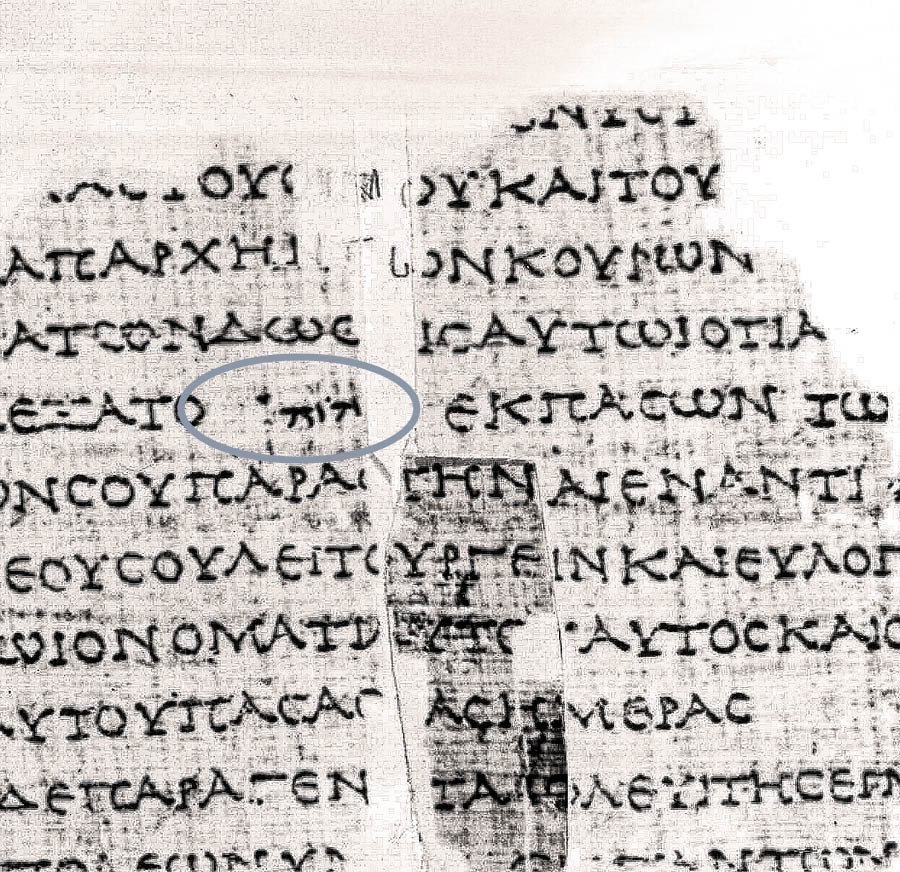 ΟΥϹ ΟΥ ΚΑΙ ΤΟΥ
ΑΠΑΡΧΗΝ ΩΝ ΚΟΥΡΩΝ
ΑΤΩΝ ΔΩϹΕΙϹ ΑΥΤΩΙ ΟΤΙ Α
ΛΕΞΑΤΟ יהוה ΕΚ ΠΑϹΩΝ ΤΩ
ΩΝ ϹΟΥ ΠΑΡΑϹΤΗΝΑΙ ΕΝΑΝΤΙ
ΘΕΟΥ ϹΟΥ ΛΕΙΤΟΥΡΓΕΙΝ ΚΑΙ ΕΥΛΟΓ
ΤΩΙ ΟΝΟΜΑΤΙ ΑΥΤΟΥ ΑΥΤΟϹ ΚΑΙ Ο
ΑΥΤΟΥ ΠΑϹΑϹ ΤΑϹ ΗΜΕΡΑϹ
ΔΕ ΠΑΡΑΓΕΝΗΤΑΙ Ο ΛΕΥΙΤΗϹ ΕΓ Μ